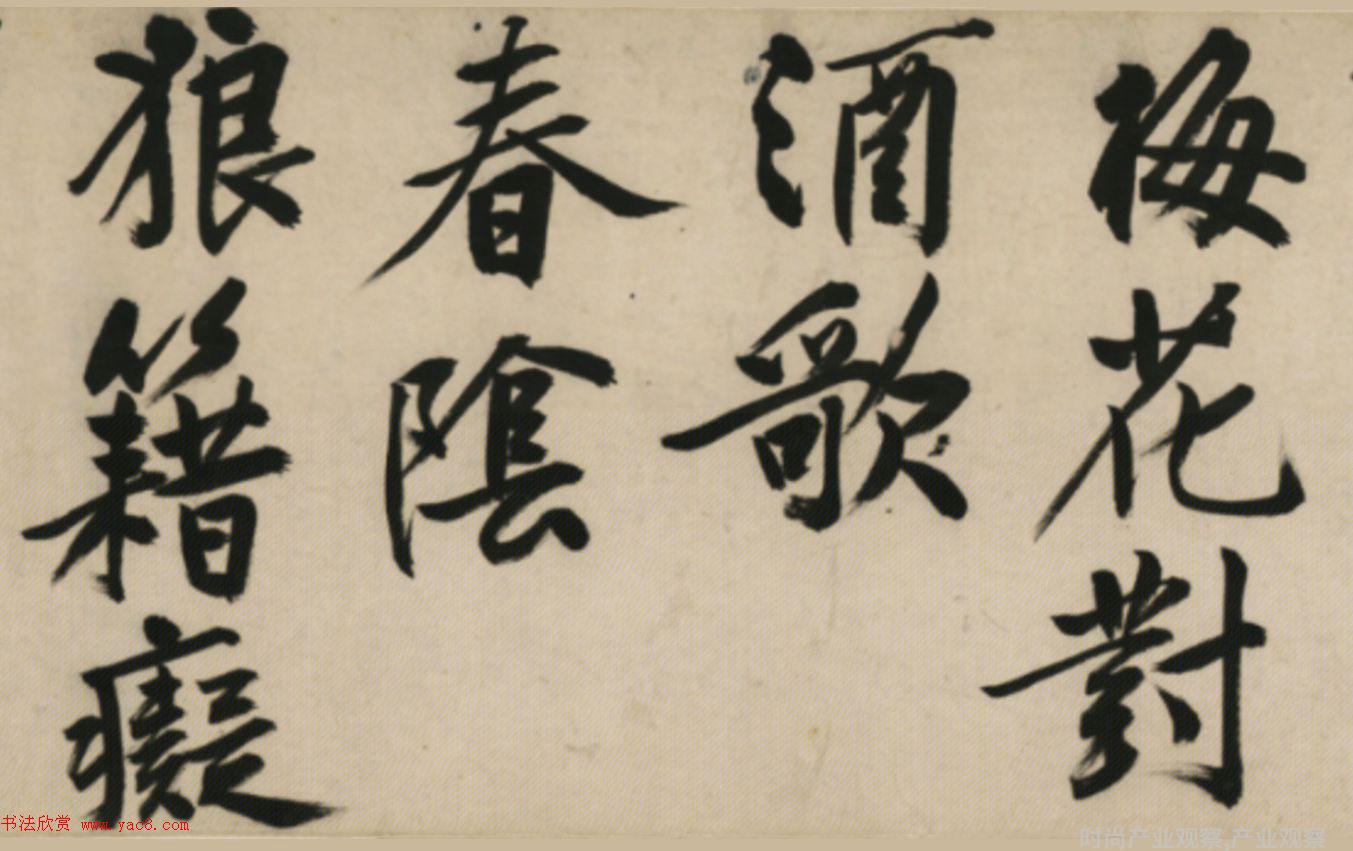 梅花對
酒歌
春陰
狼籍癡
书法欣赏 www.yac8.com
时尚产业观察,产业观察